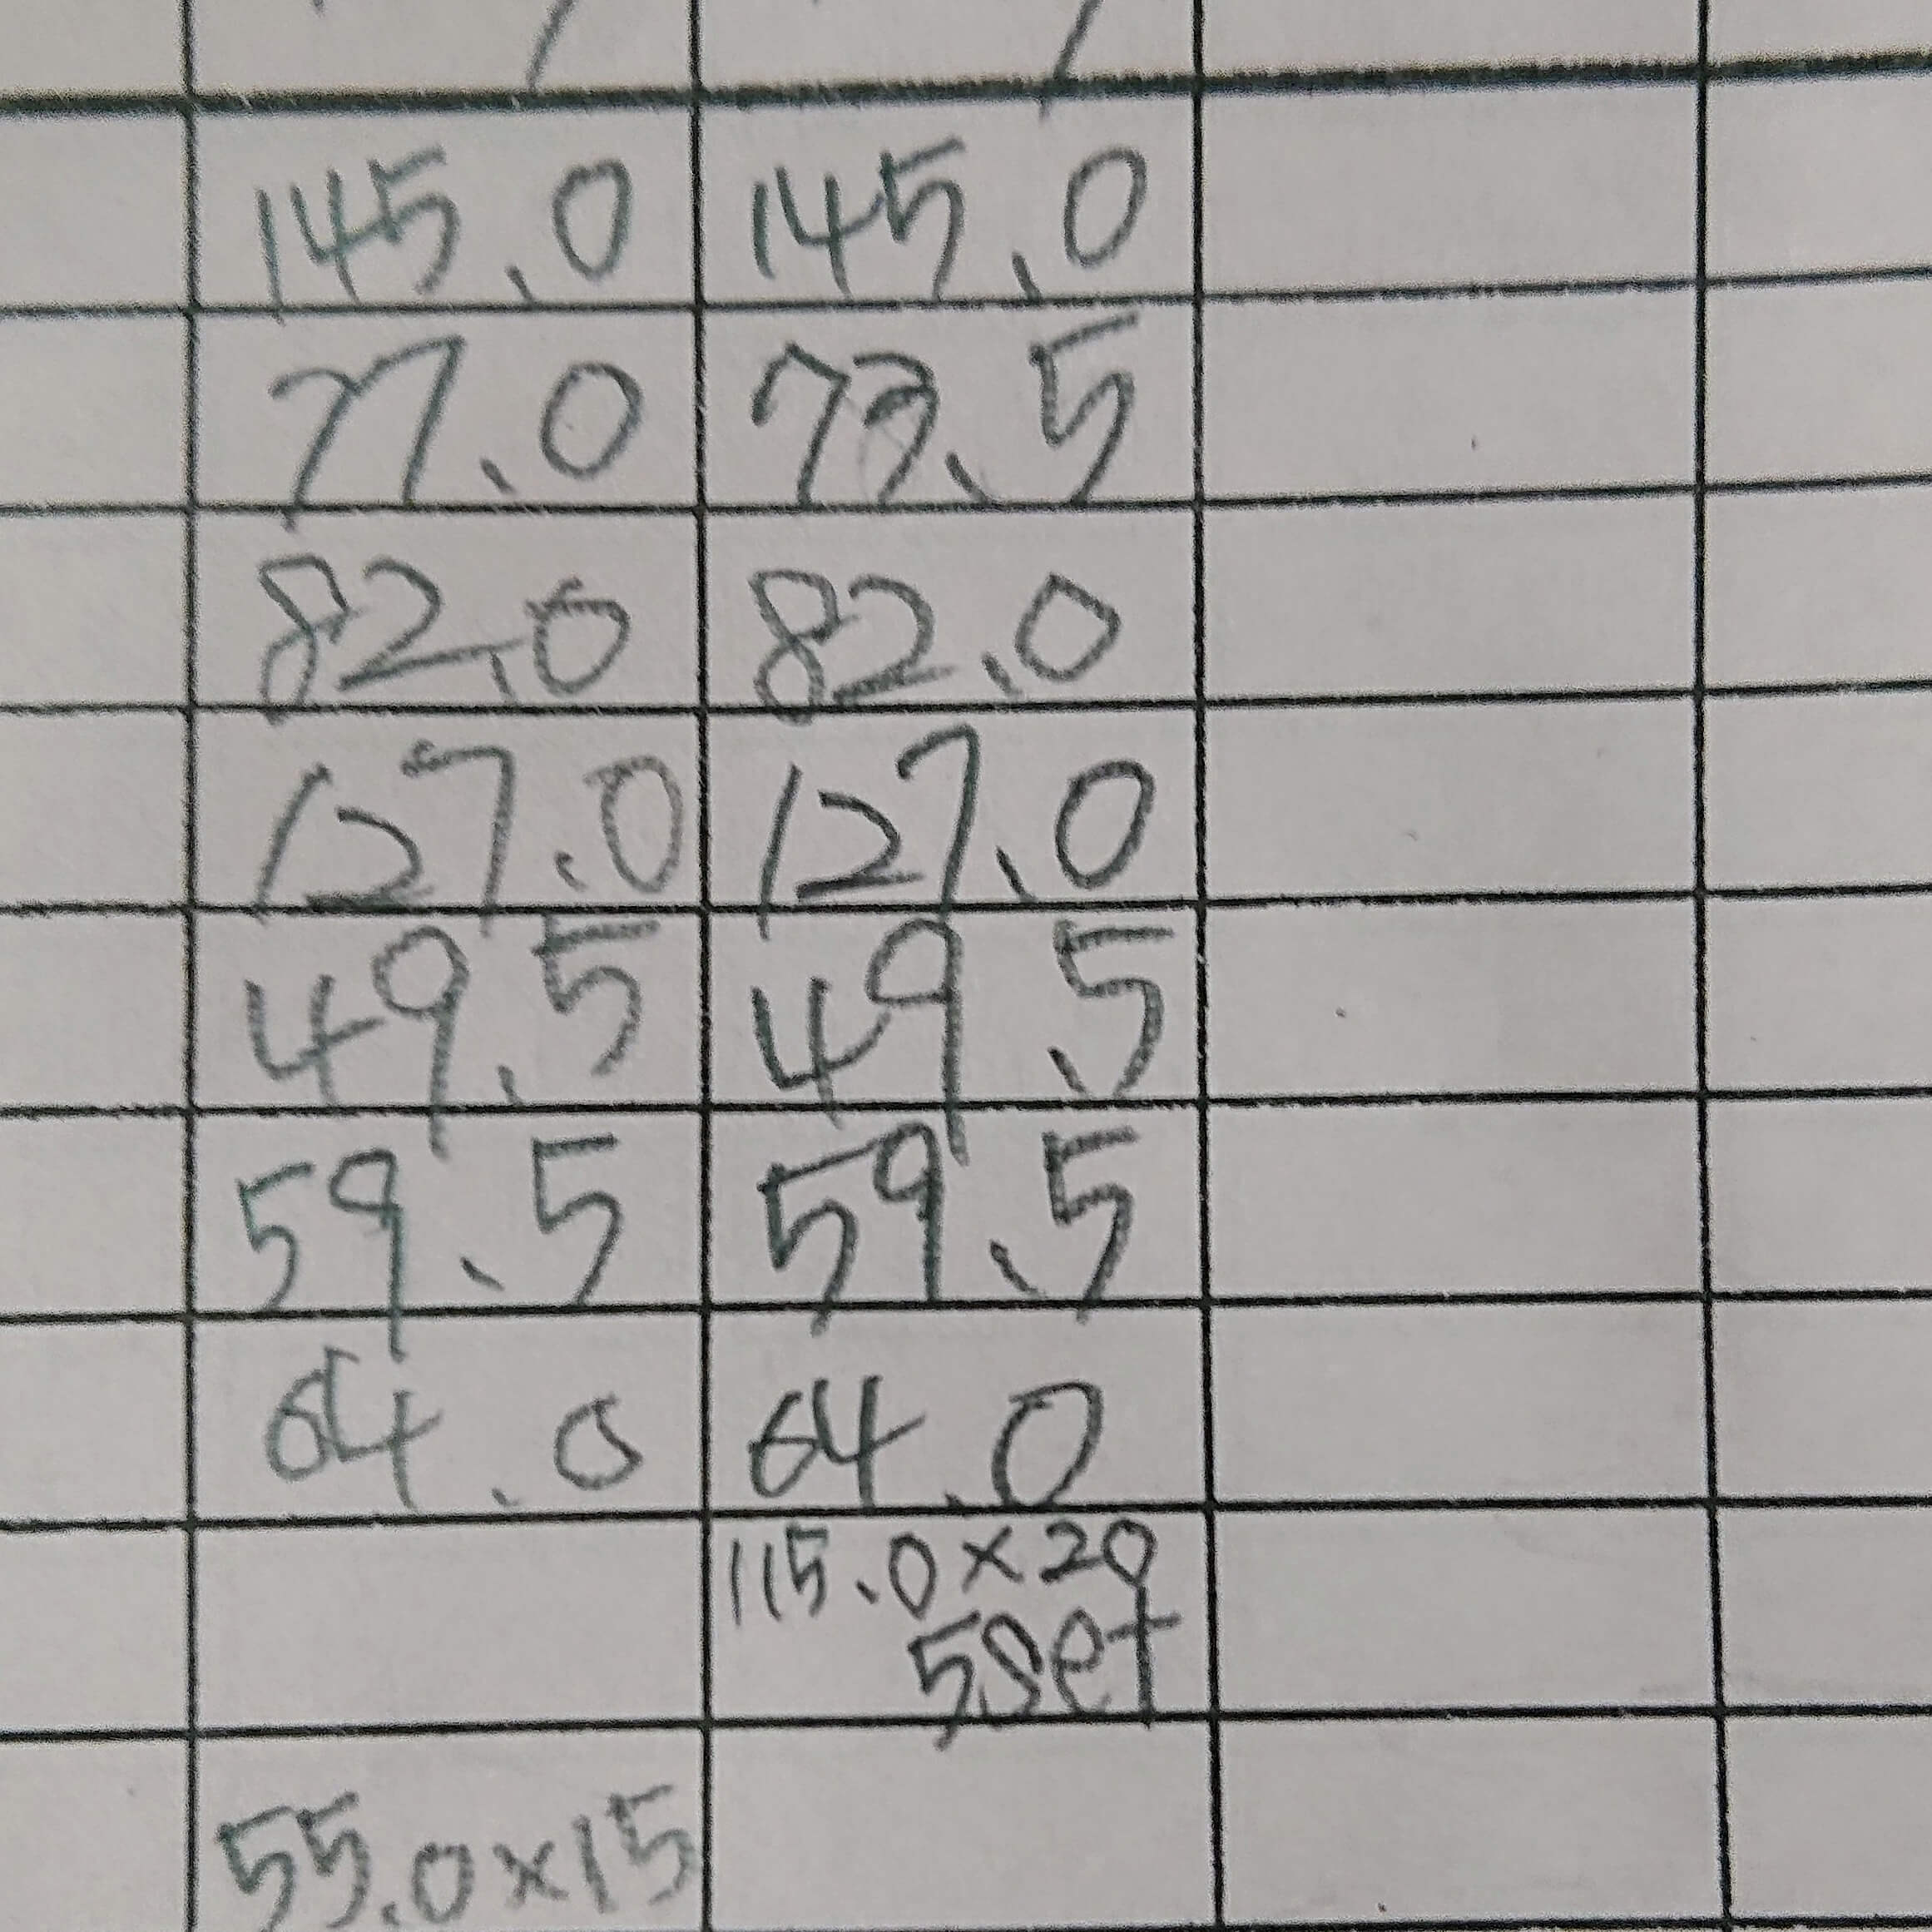 145.0 145.0
77.0 73.5
82.0 82.0
127.0 127.0
49.5 49.5
59.5 59.5
64.0 64.0
115.0×20
5set
55.0×15